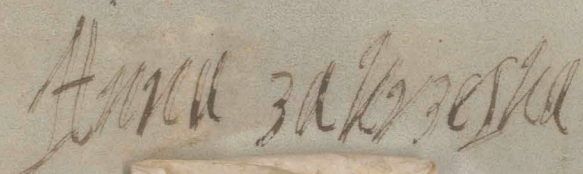 Anna zakrzeska